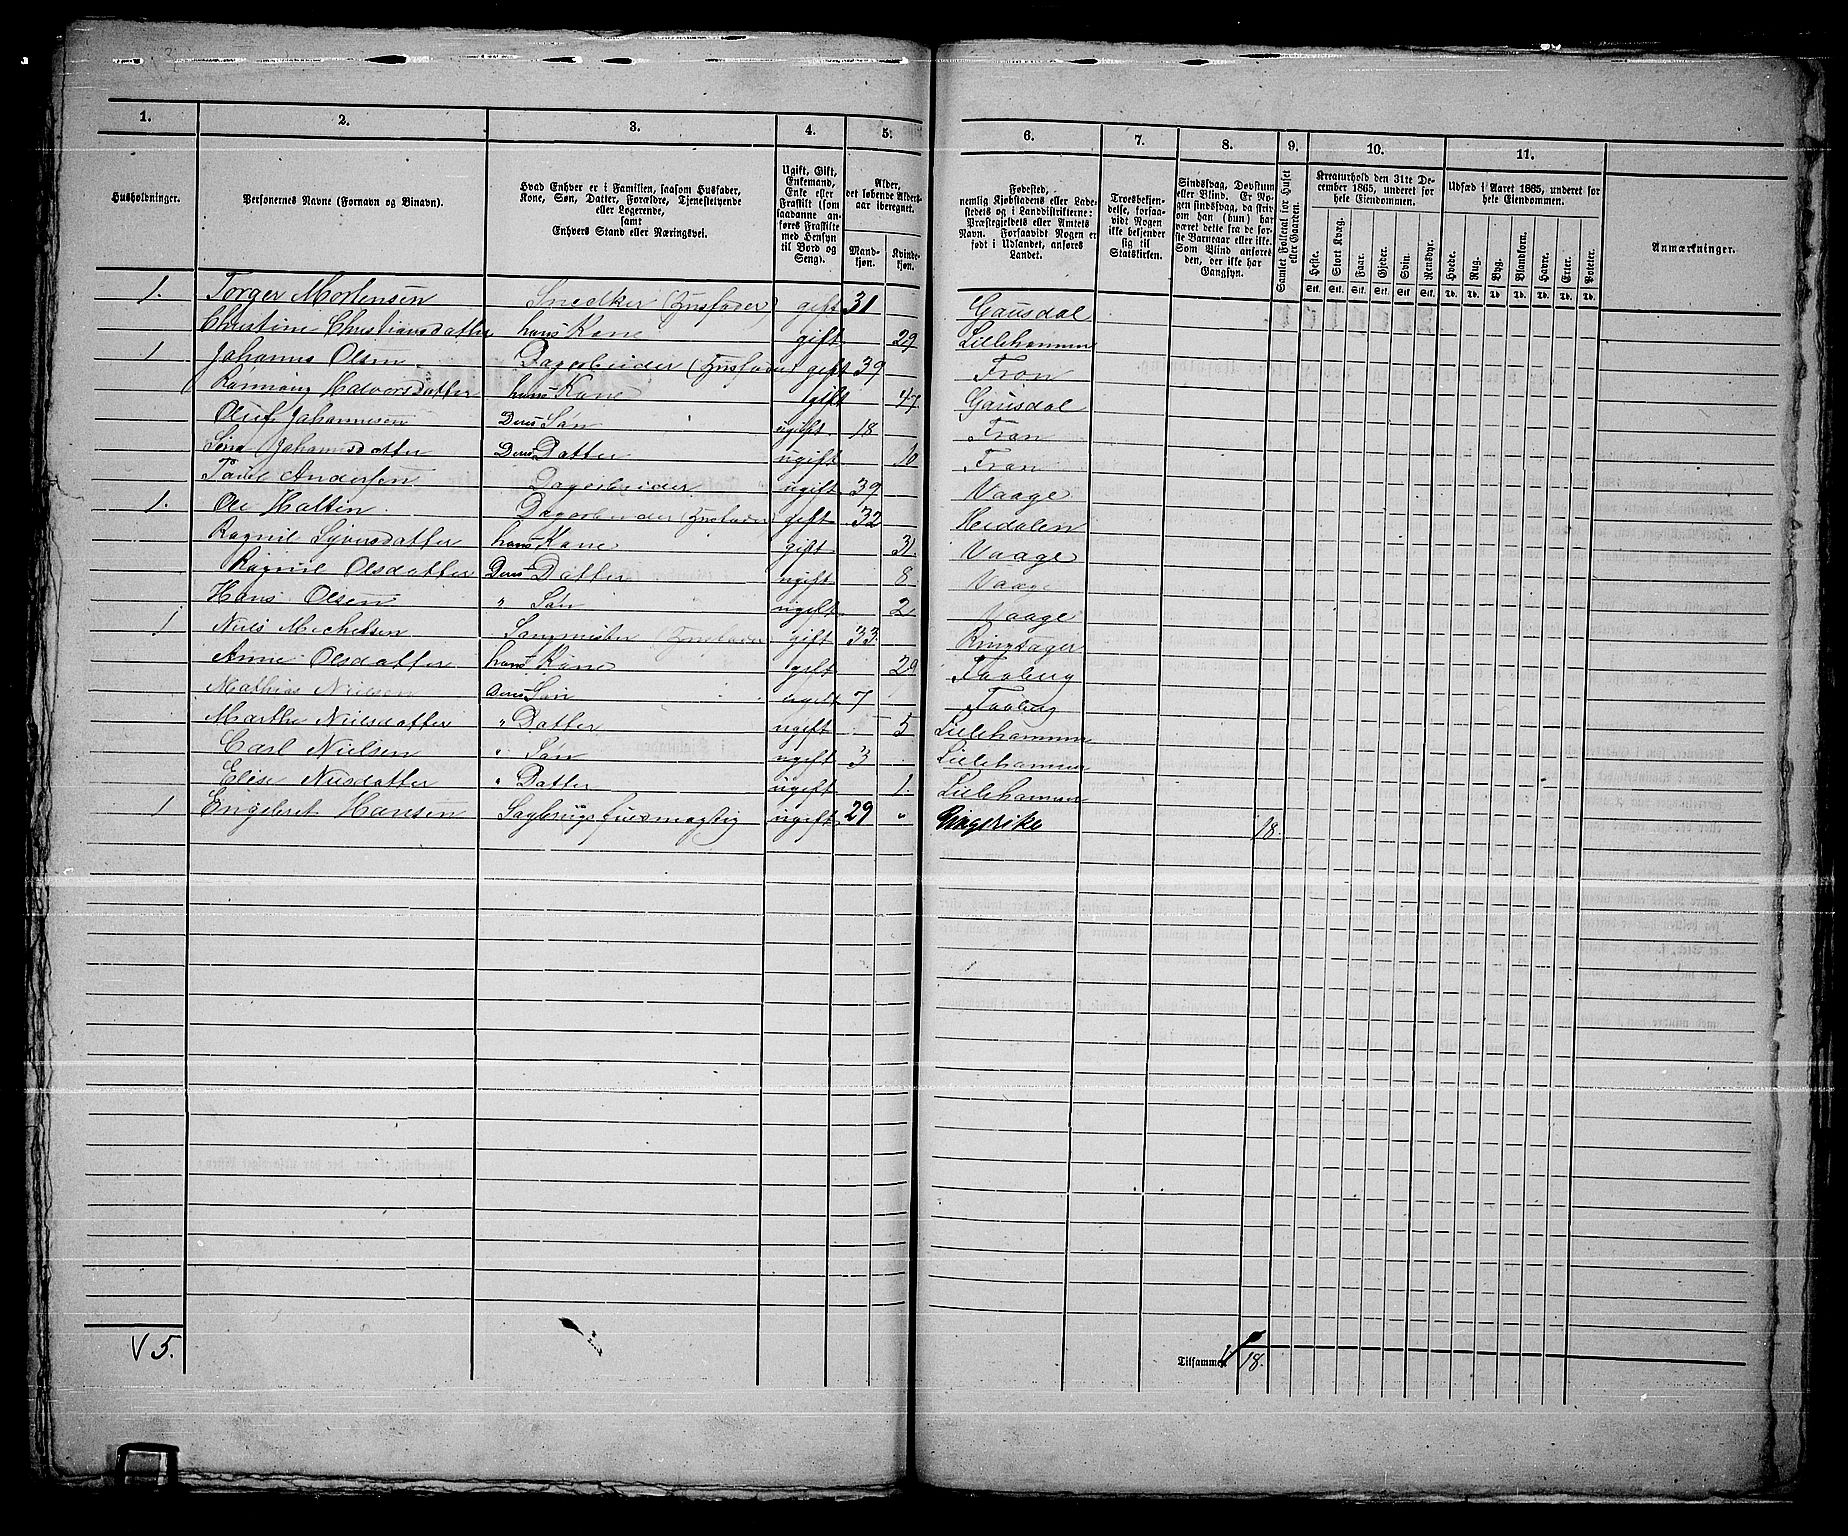 1. 2. 3. 4. 5. 6. 7. 8. 9. 10. 11.
Husholdninger.
Personernes Navne (Fornavn og Binavn).
Hvad Enhver er i Familien, saasom Husfader, Kone, Søn, Datter, Forældre, Tjenestetyende eller Logerende, samt Enhvers Stand eller Næringsvei.
Ugift, Gift, Enkemand, Enke eller Fraskilt (som saadanne anføres Fraskilte med Hensyn til Bord og Seng).
Alder, det løbende Alders-aar iberegnet.
Mand-kjøn. Kvinde-kjøn.
Fødested, nemlig Kjøbstadens eller Ladestedets og i Landdistrikterne: Præstegjeldets eller Amtets Navn. Forsaavidt Nogen er født i Udlandet, anføres Landet.
Troesbekjendelse, forsaavidt Nogen ikke bekjender sig til Statskirken.
Sindssvag, Døvstum eller Blind. Er Nogen sindssvag, da skrives om han (hun) har været dette fra de første Barneaar eller ikke. Som Blind anføres den, der ikke har Gangsyn.
Samlet Folketal for Huset eller Gaarden.
Kreaturhold den 31te December 1865, underet for hele Eiendommen.
Heste. Stort Kvæg. Faar. Gjeder. Svin. Rensdyr.
Stk. Stk. Stk. Stk. Stk. Stk.
Udsæd i Aaret 1865, underet for hele Eiendommen.
Hvede. Rug. Byg. Blandkorn. Havre. Erter. Poteter.
Td. Td. Td. Td. Td. Td. Td.
Anmærkninger.
1. Torger Mortensen Snedker (Husfader) gift 31 Gausdal
Christine Christiansdatter hans Kone gift 29 Lillehammer
1 Johannes Olsen Dagarbeider (Husfader) gift 39 Fron
Halvorsdatter hans Kone gift 47 Gausdal
Oluf Johannesen Deres Søn ugift 18 Fron
Johannsdatter Deres Datter ugift 10 Fron
Paul Andersen Dagarbeider ugift 39 Vaage
1. Ole Dagarbeider (Husfader) gift 32 Hedalen
Ragnil Syversdatter hans Kone gift 31. Vaage
Ragnil Olsdatter Deres Datter ugift 8 Vaage
Hans Olsen " Søn ugift 2. Vaage
1 Niels Michelsen Sangmister (Husfader gift 33. Ringsager
Anne Olsdatter hans Kone gift 29 Faaberg
Mathias Nielsen Deres Søn ugift 7 Faaberg
Marthe Nielsdatter " Datter ugift 5 Lillehammer
Carl Nielsen " Søn ugift 3 Lillehammer
Elise Nilsdatter " Datter ugift 1. Lillehammer
1 Engebret Hansen Sagbrugsfuldmægtig ugift 29 " Ringerike 18
V 5. Tilsammen 18.